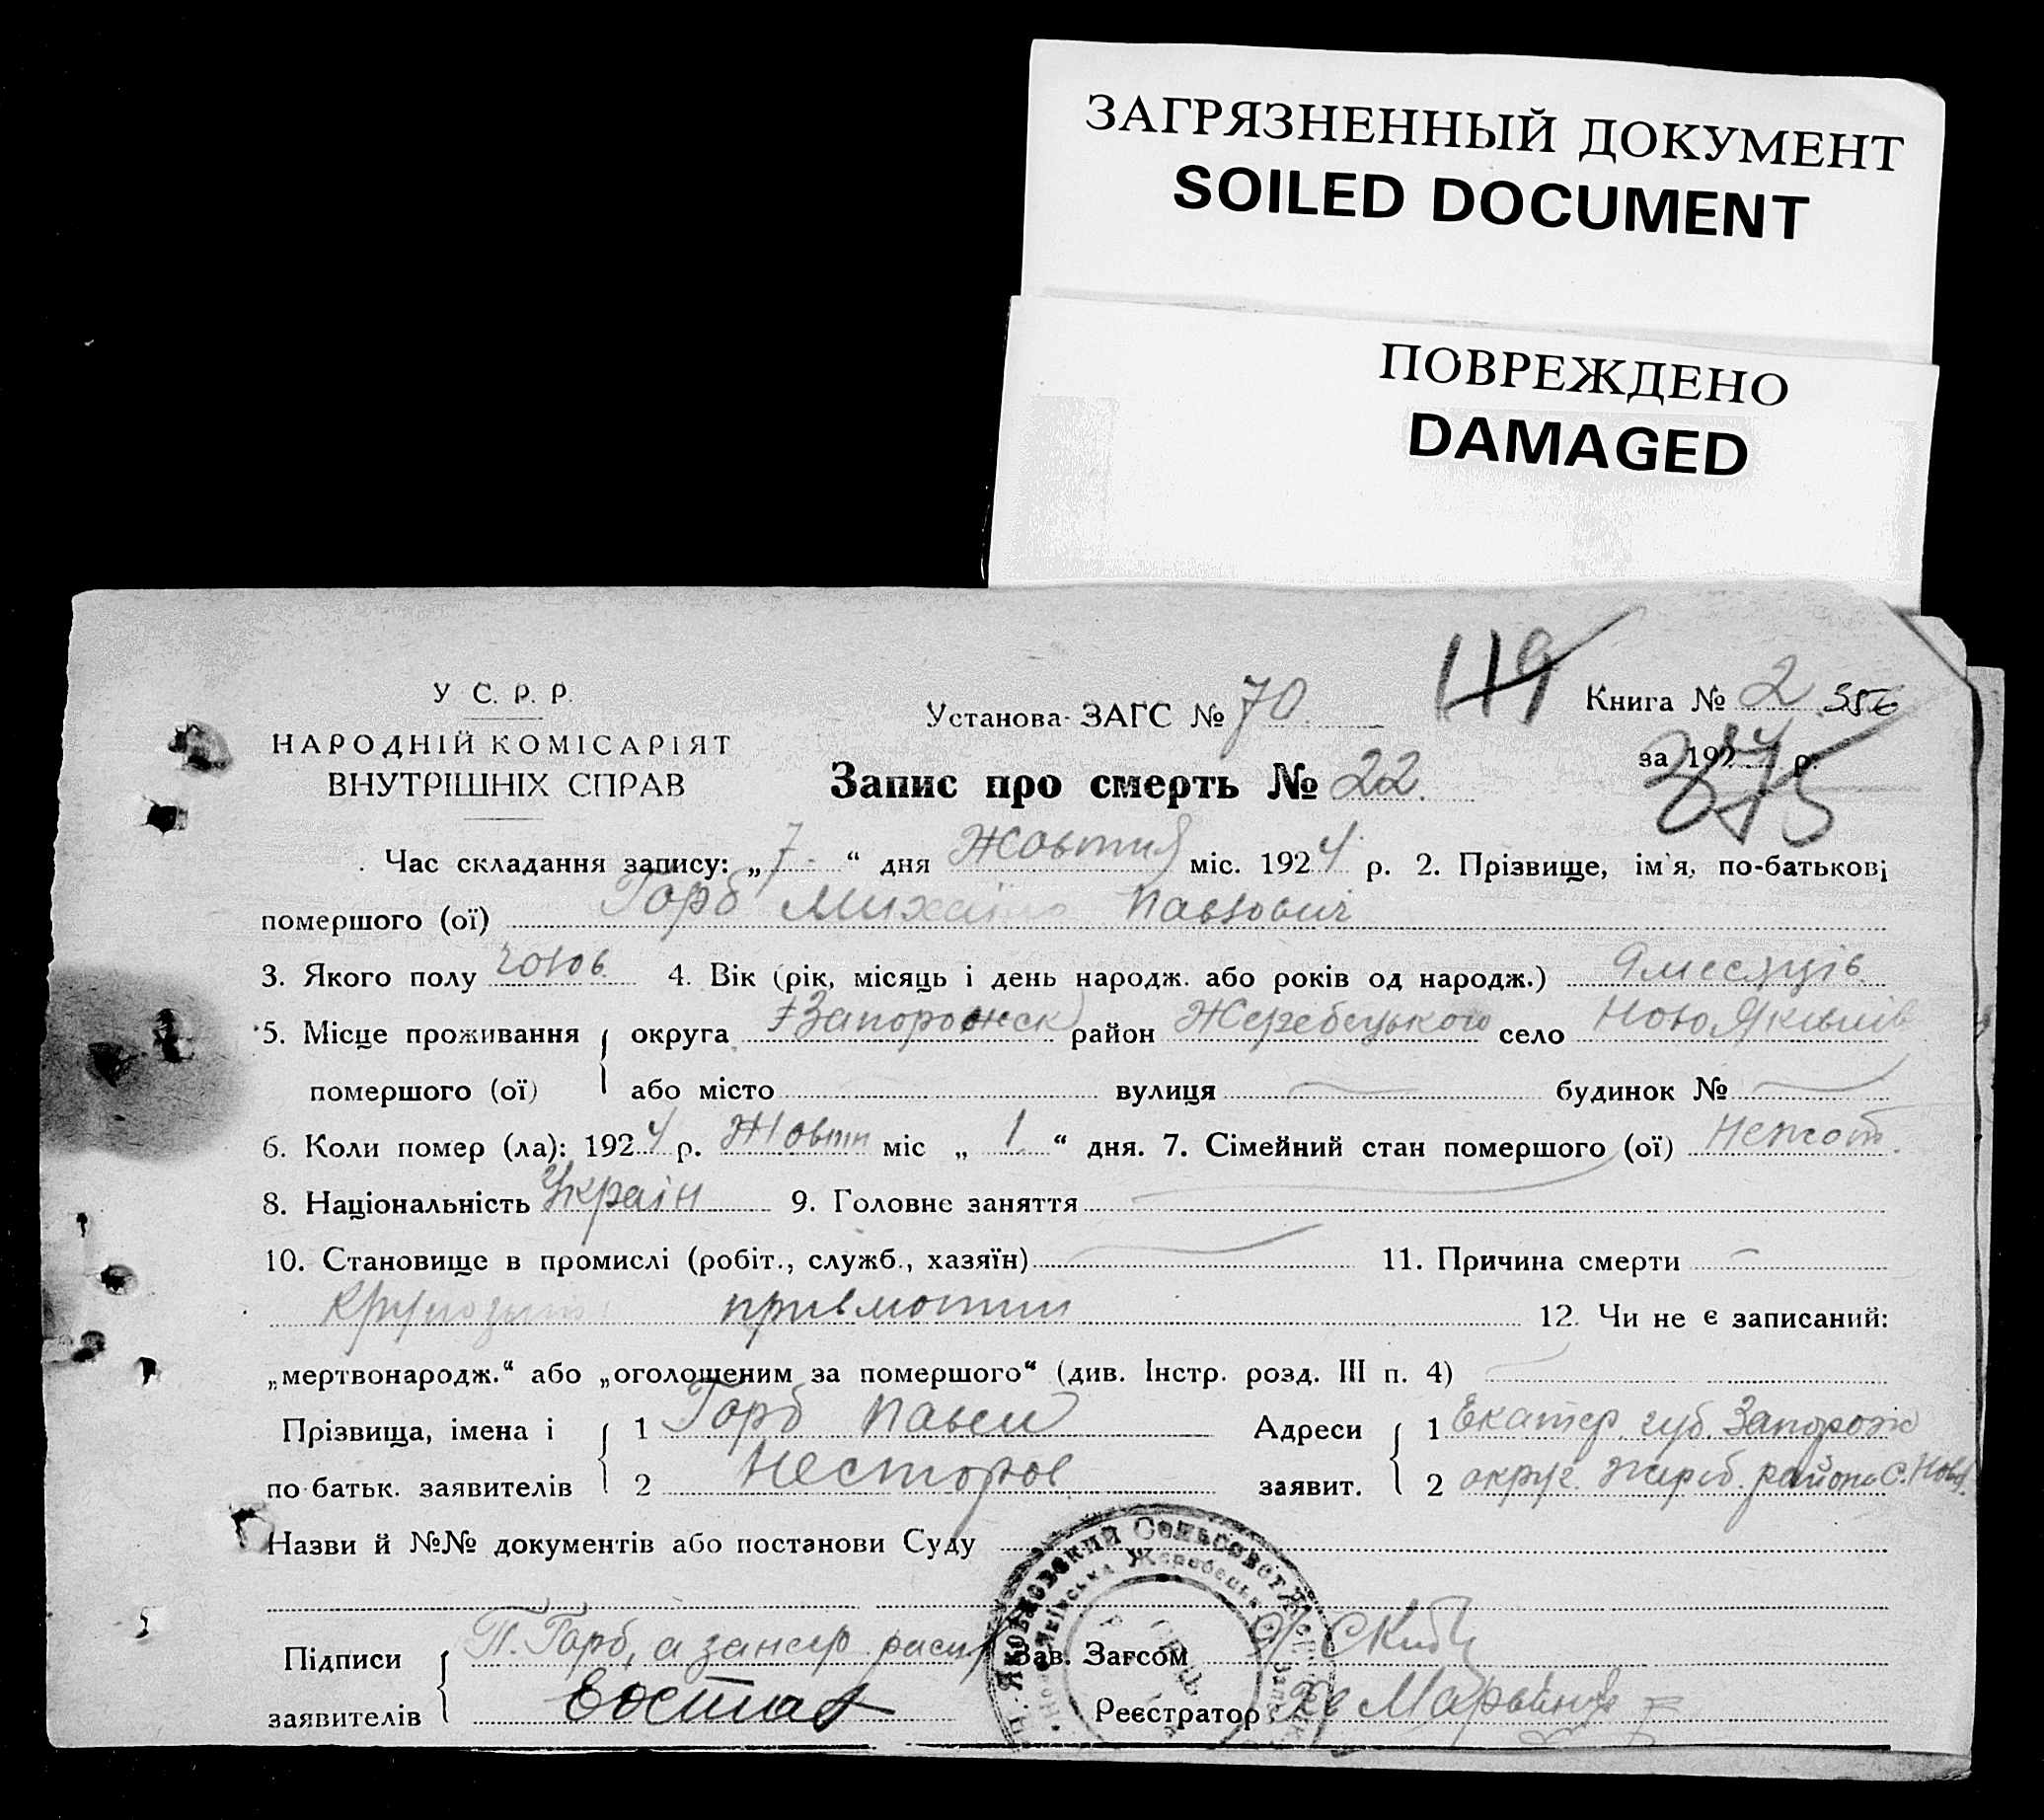 ЗАГРЯЗНЕННЫЙ ДОКУМЕНТ
SOILED DOCUMENT
ПОВРЕЖДЕНО
DAMAGED
У С. Р. Р.
НАРОДНІЙ КОМІСАРІЯТ
ВНУТРІШНІХ СПРАВ
Установа ЗАГС № 70
119
Книга № 2 356
за 1924 р.
375
Запис про смерть № 22.
Час складання запису: „7“ дня Жовтня міс. 1924 р. 2. Прізвище, ім'я, по-батькові
помершого (ої) Горб Михайло Павлович
3. Якого полу чолов. 4. Вік (рік, місяць і день народж. або років од народж.) 9 месяців
5. Місце проживання округа Запорожск район Жеребецького село Ново Яківлів
помершого (ої) або місто вулиця будинок №
6. Коли помер (ла): 1924 р. Жовтн міс „1“ дня. 7. Сімейний стан помершого (ої) Нежот.
8. Національність Україн 9. Головне заняття
10. Становище в промислі (робіт., служб., хазяїн) 11. Причина смерти
12. Чи не є записаний:
„мертвонародж.“ або „оголошеним за помершого“ (див. Інстр. розд. III п. 4)
Прізвища, імена і 1 Горб Павел Адреси 1 Екатер. губ. Запорож
по батьк. заявителів 2 Несторов заявит. 2 округ. Жереб. района С. Новоя.
Назви й №№ документів або постанови Суду
Яковлевский Сельсовет
Підписи П. Горб, а за негр распис Зав. Загсом
заявителів Реєстратор